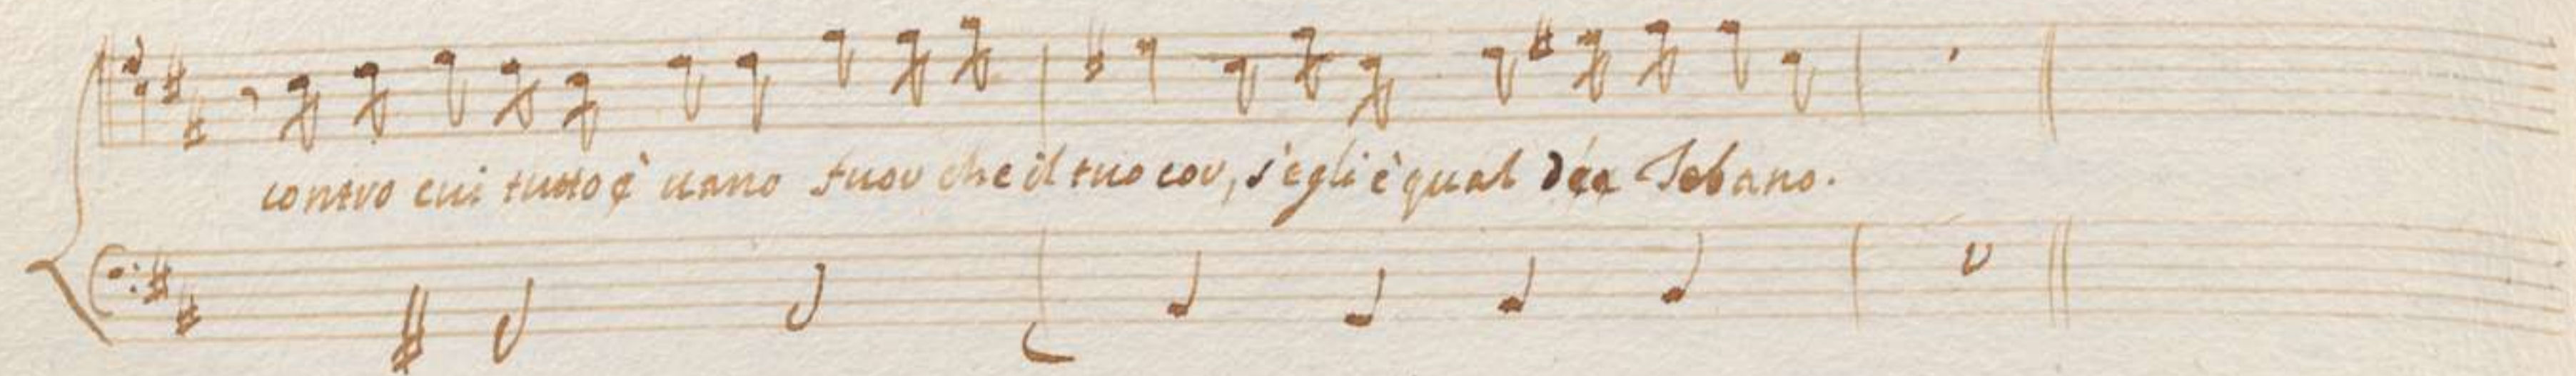 contro cui tutto è uano fuor che il tuo cor, s'egli è qual dèe Tebano.